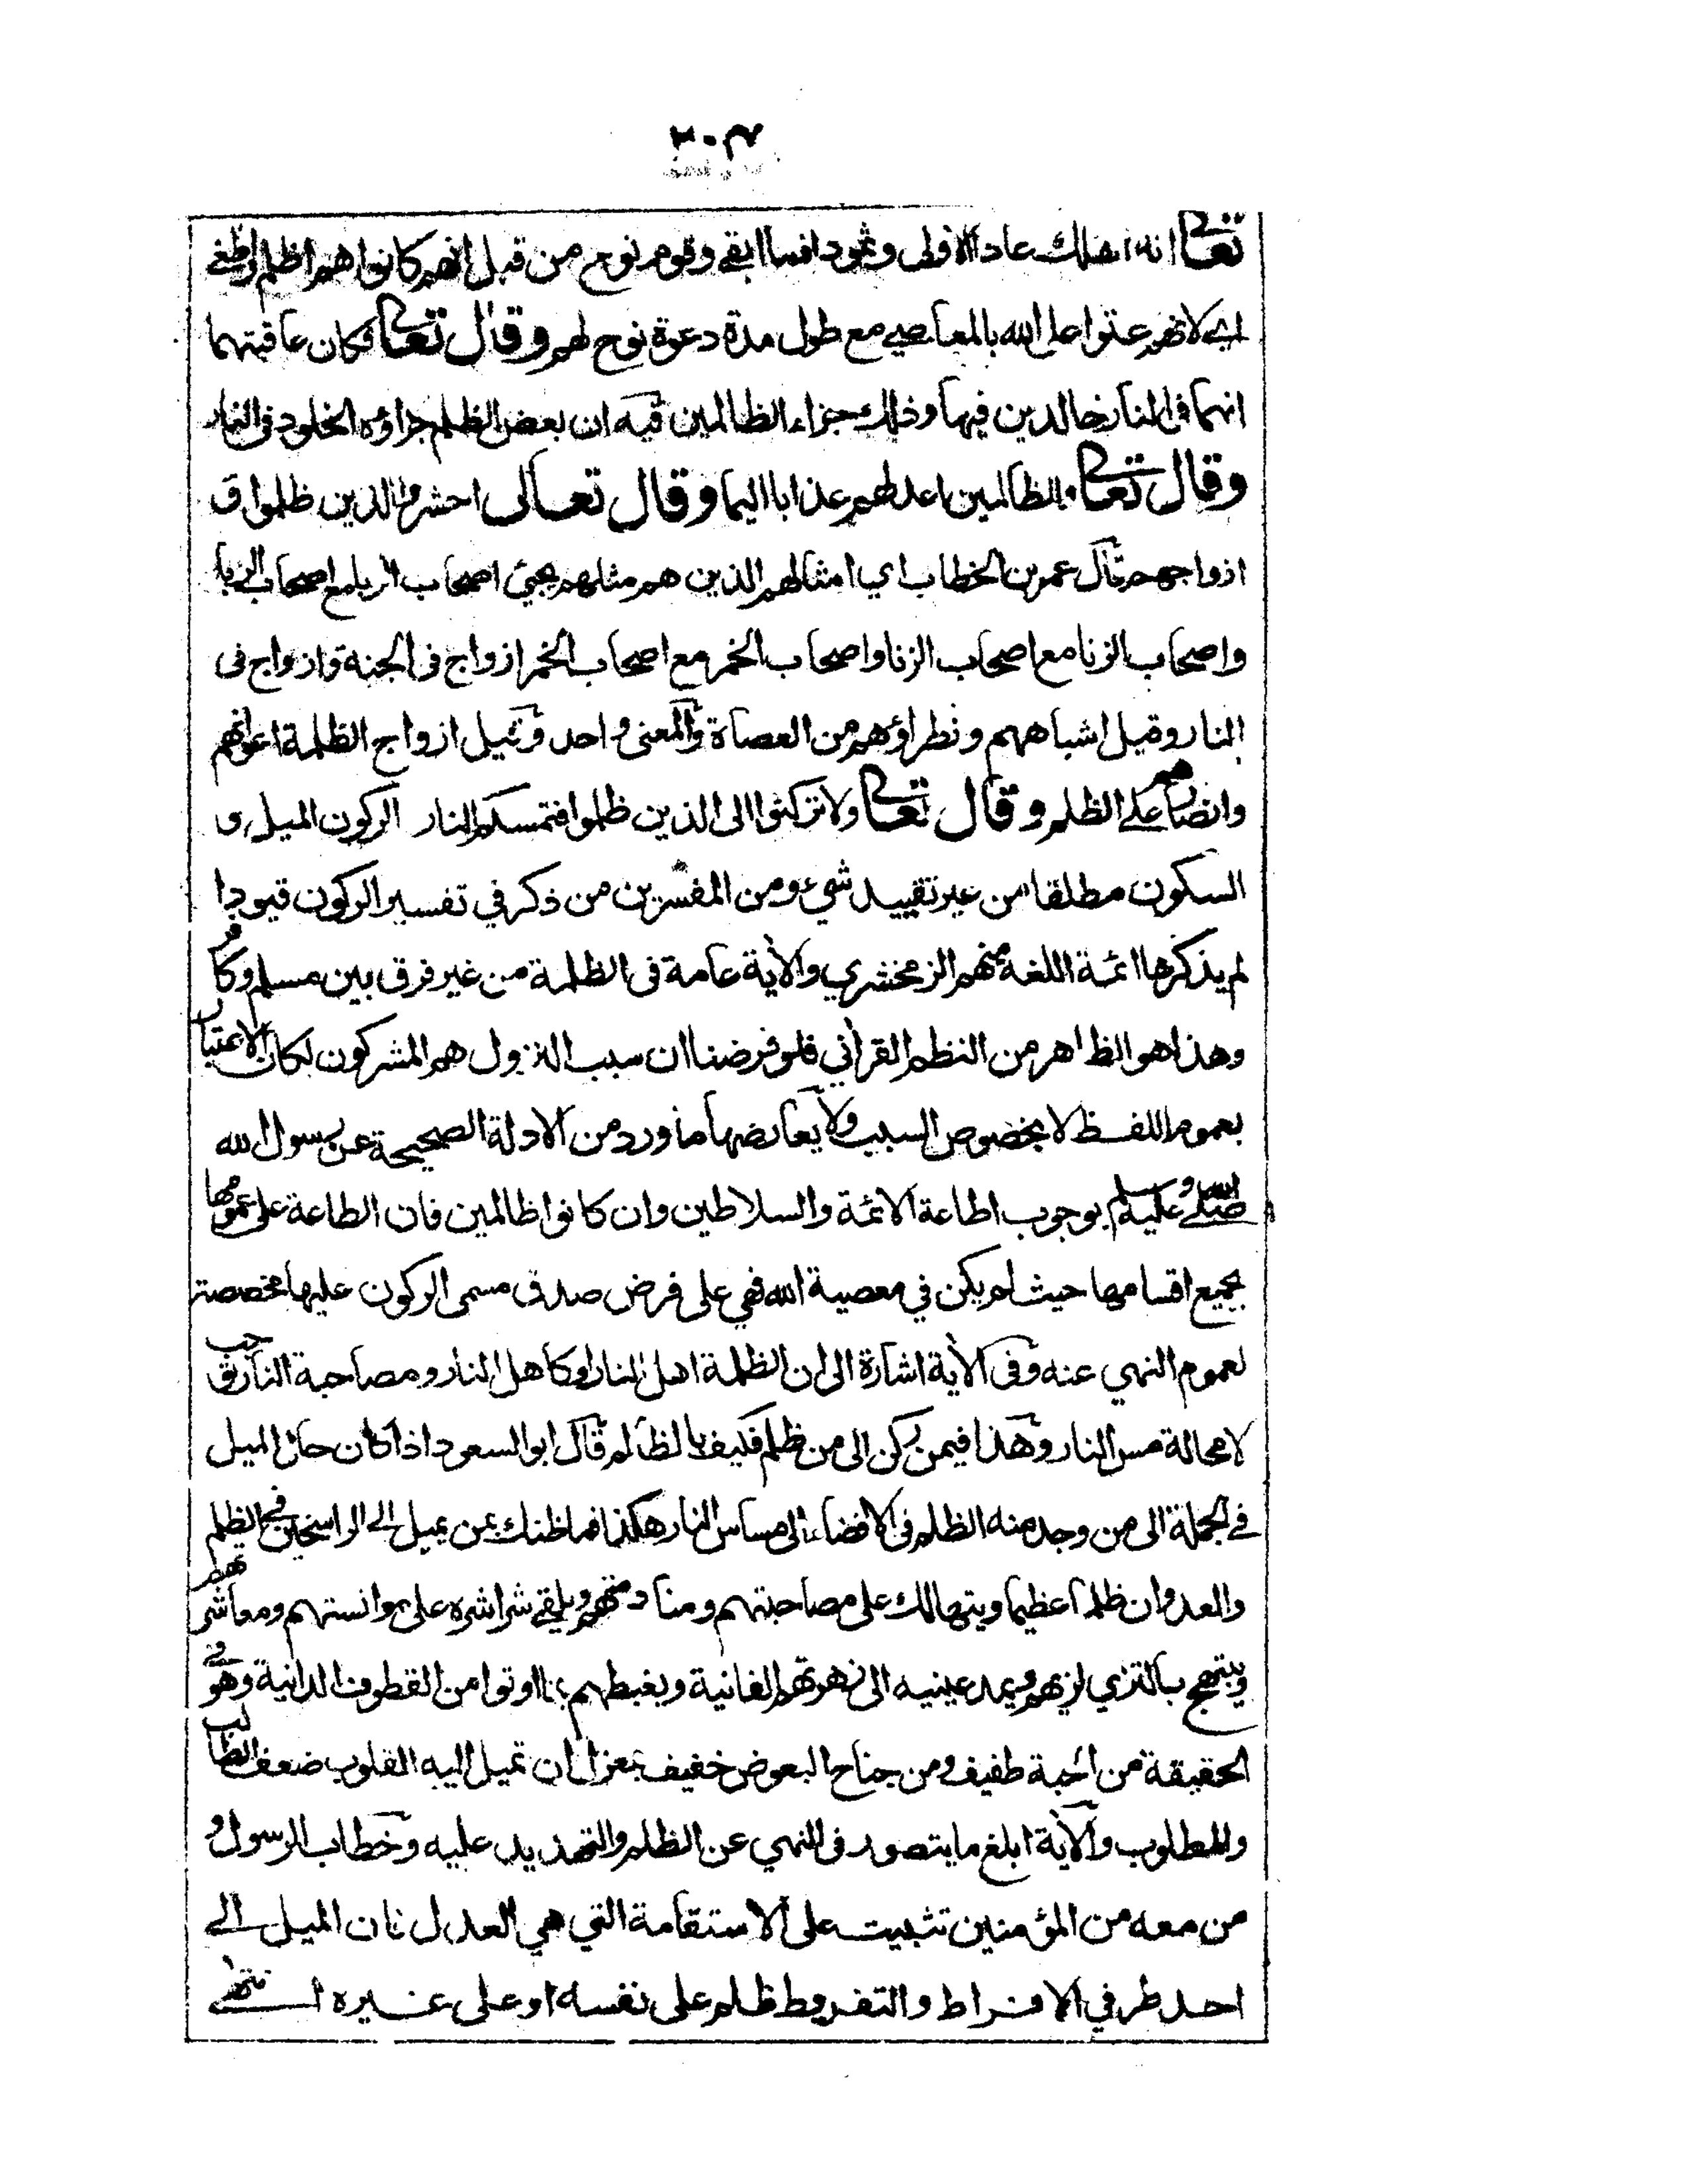 ٢٠٣
تعالى انه اهلك عادا الاولى وثمود افما ابقى وقوم نوح من قبل انهم كانوا هم اظلم واطغى
اي لانهم عتوا على الله بالمعاصي مع طول مدة دعوة نوح لهم وقال تعالى فكان عاقبتهما
انهما في النار خالدين فيها وذلك جزاء الظالمين فيه ان بعض الظلم جزاؤه الخلود في النار
وقال تعالى والظالمين اعد لهم عذابا اليما وقال تعالى احشروا الذين ظلموا و
ازواجهم قال عمر بن الخطاب اي امثالهم الذين هم مثلهم يجيئ اصحاب الربا مع اصحاب الربا
واصحاب الزنا مع اصحاب الزنا واصحاب الخمر مع اصحاب الخمر ازواج في الجنة وازواج في
النار وقيل اشباههم ونظراؤهم من العصاة والمعنى واحد وقيل ازواج الظلمة اعوانهم
وانصارهم على الظلم وقال تعالى ولا تركنوا الى الذين ظلموا فتمسكم النار الركون الميل و
السكون مطلقا من غير تقييد شيء ومن المفسرين من ذكر في تفسير الركون قيودا
لم يذكرها ائمة اللغة منهم الزمخشري والآية عامة في الظلمة من غير فرق بين مسلم وكافر
وهذا هو الظاهر من النظم القرآني فلو فرضنا ان سبب النزول هم المشركون لكان الاعتبار
بعموم اللفظ لا بخصوص السبب ولا يعارضها ما ورد من الادلة الصحيحة عن رسول الله
صلى الله عليه وسلم بوجوب اطاعة الائمة والسلاطين وان كانوا ظالمين فان الطاعة على عمومها
بجميع اقسامها حيث لم يكن في معصية الله فهي على فرض صدق مسمى الركون عليها مخصصة
لعموم النهي عنه وفي الآية اشارة الى ان الظلمة اهل النار او كاهل النار ومصاحبة النار توجب
لا محالة مس النار وهذا فيمن ركن الى من ظلم فكيف بالظالم قال ابو السعود اذا كان حال الميل
في الجملة الى من وجد منه الظلم في الافضاء الى مساس النار هكذا فما ظنك بمن يميل الى الراسخين في الظلم
والعدوان ظلما عظيما ويتهالك على مصاحبتهم ومنادمتهم ويلقي شراشره على موانستهم ومعاشرتهم
ويبتهج بالتزي لزيهم ويمد عينيه الى زهرتهم الفانية ويغبطهم بما اوتوا من القطوف الدانية وهو في
الحقيقة من الحبة طفيف ومن جناح البعوض خفيف بمعزل ان تميل اليه القلوب ضعف الطالب
والمطلوب والآية ابلغ ما يتصور في النهي عن الظلم والتهديد عليه وخطاب الرسول و
من معه من المؤمنين تثبيت على الاستقامة التي هي العدل فان الميل الى
احد طرفي الافراط والتفريط ظلم على نفسه او على غيره انتهى